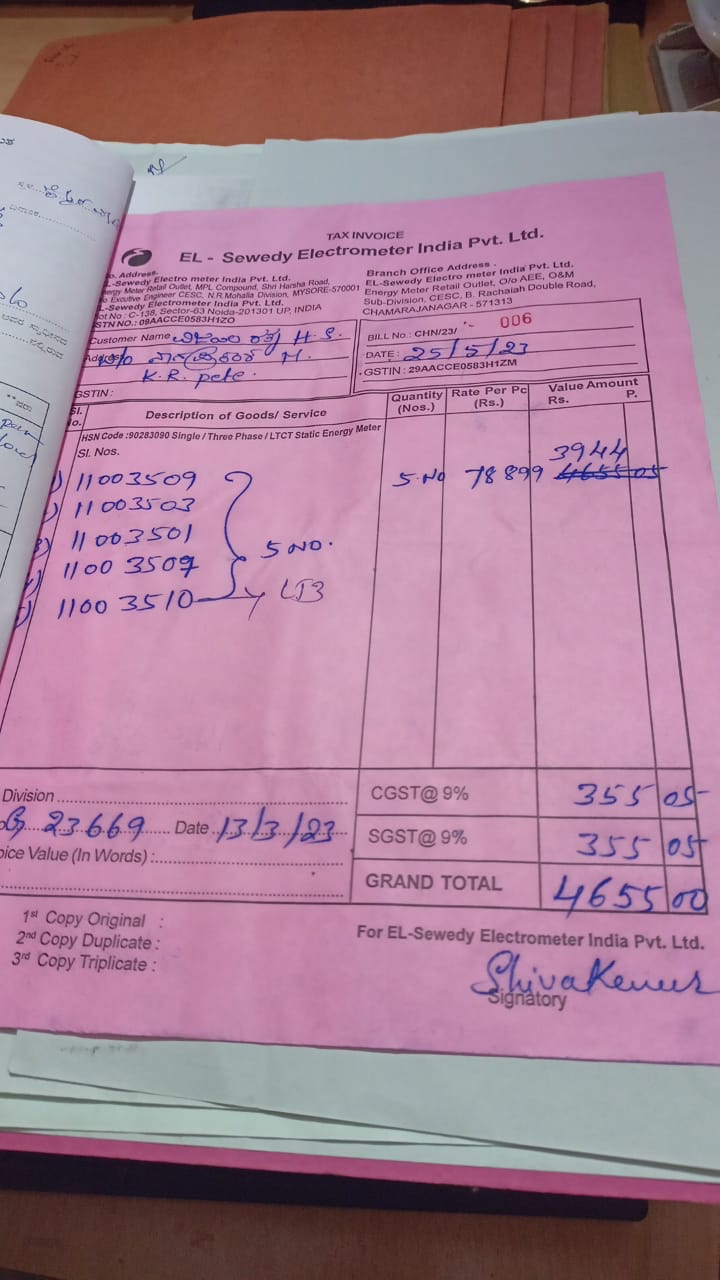 TAX INVOICE
EL - Sewedy Electrometer India Pvt. Ltd.
Address.
L-Sewedy Electro meter India Pvt. Ltd.
ergy Meter Retail Outlet, MPL Compound, Shri Harsha Road,
Excutive Engineer CESC, N.R.Mohalla Division, MYSORE-570001
L-Sewedy Electrometer India Pvt. Ltd.
ot No : C-138, Sector-63 Noida-201301 UP, INDIA
STN NO.: 09AACCE0583H1ZO
Branch Office Address .
EL-Sewedy Electro meter India Pvt. Ltd.
Energy Meter Retail Outlet, O/o AEE, O&M
Sub-Division, CESC, B. Rachaiah Double Road,
CHAMARAJANAGAR - 571313
Customer Name H.S.
Address M.
K.R. pete.
GSTIN :
BILL No.: CHN/23/ 006
DATE : 25/5/23
GSTIN : 29AACCE0583H1ZM
Sl. No. Description of Goods/ Service Quantity (Nos.) Rate Per Pc (Rs.) Value Amount Rs. P.
HSN Code :90283090 Single / Three Phase / LTCT Static Energy Meter
Sl. Nos.
3944
11003509 5.No 78899 4655 05
11003503
11003501
5 NO.
1100 3507
1100 3510
Division
CGST@ 9% 355 05
23669 Date 13/3/23
SGST@ 9% 355 05
oice Value (In Words) :
GRAND TOTAL 4655 00
1st Copy Original :
2nd Copy Duplicate :
3rd Copy Triplicate :
For EL-Sewedy Electrometer India Pvt. Ltd.
Signatory